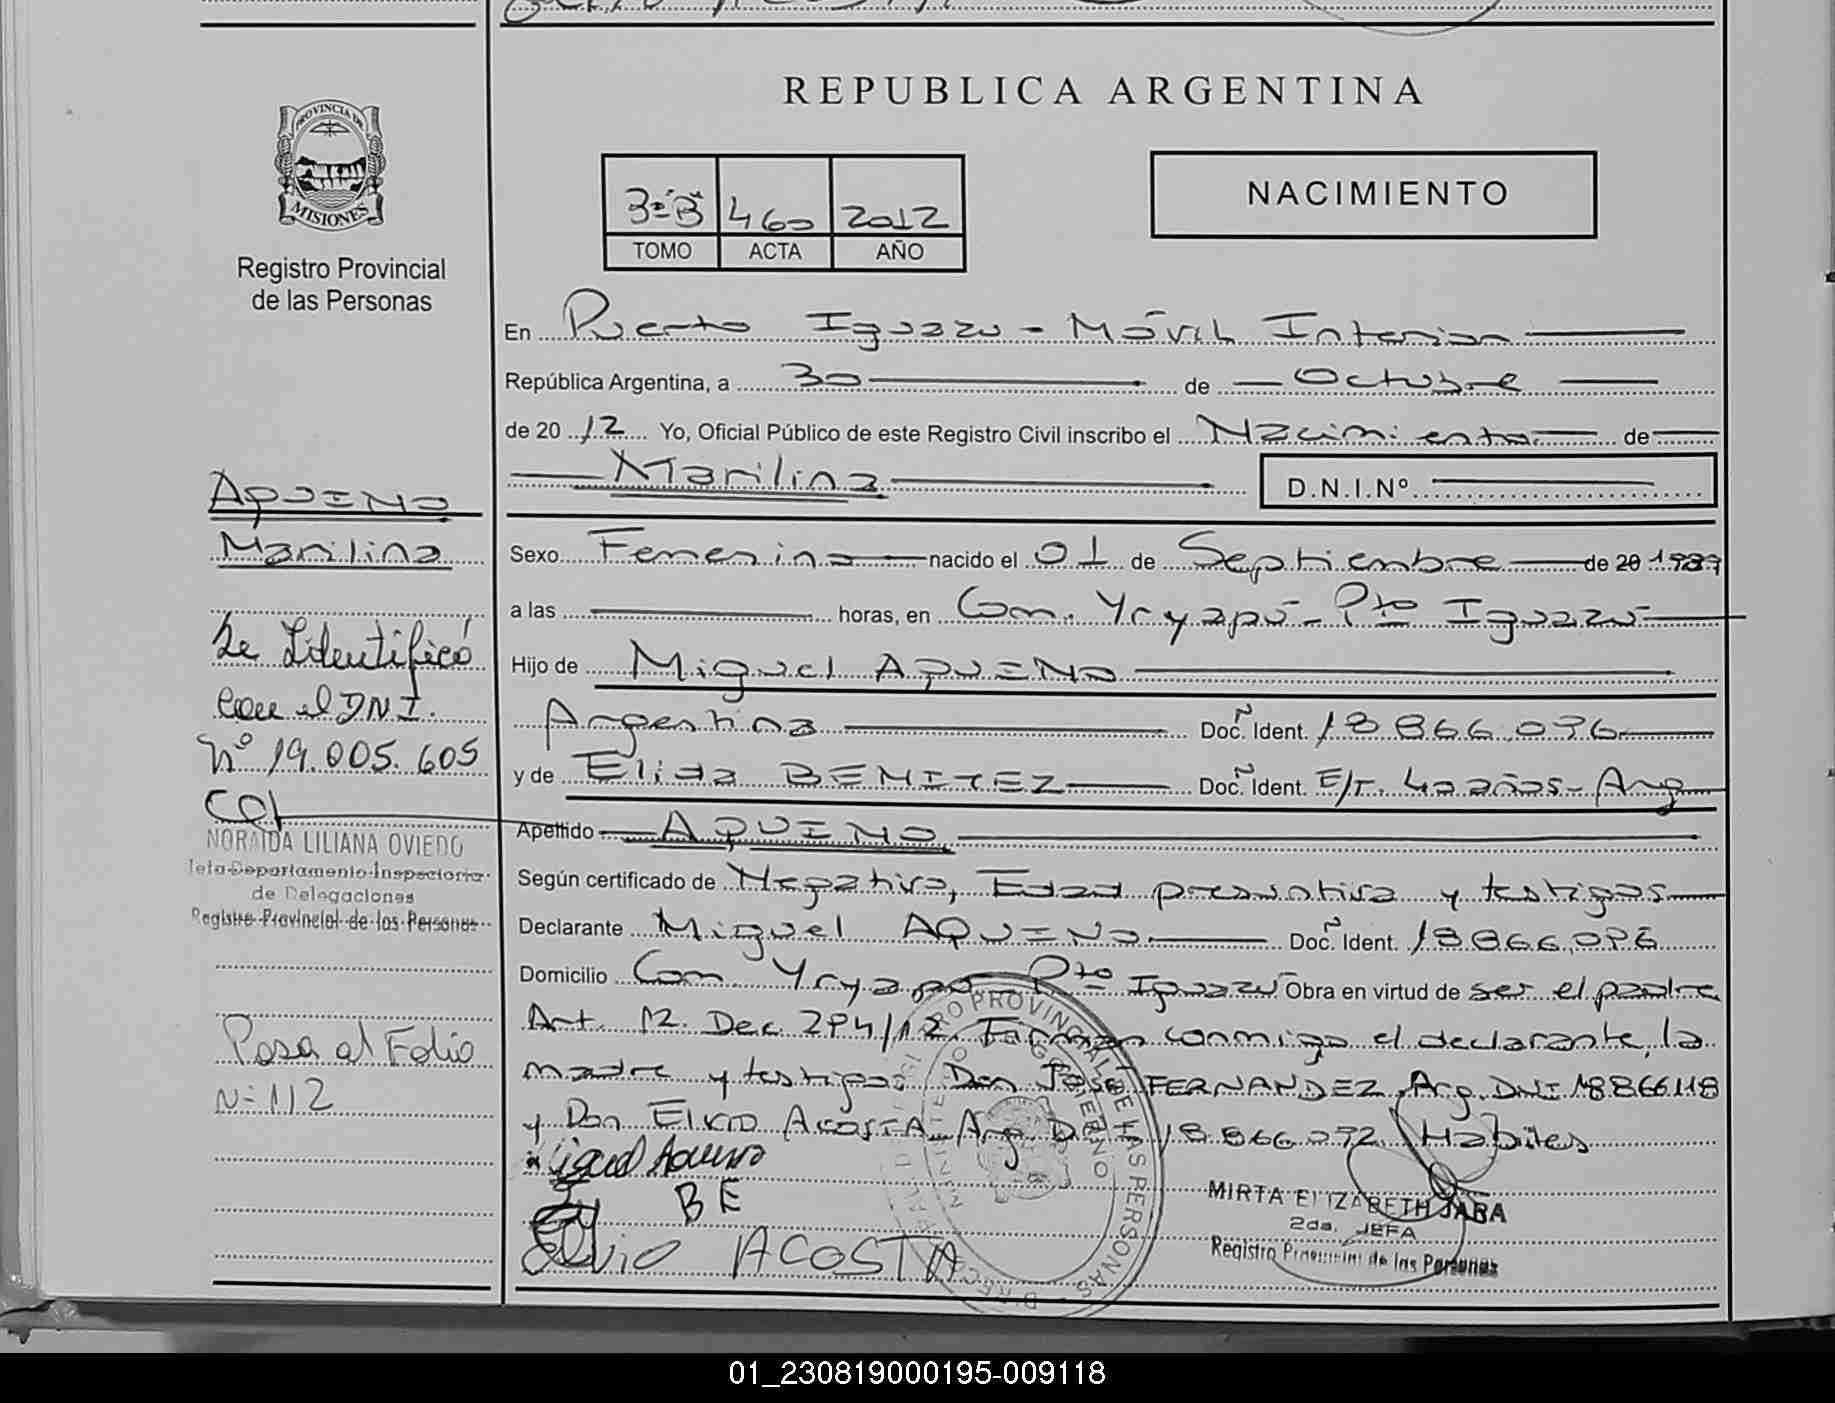 REPUBLICA ARGENTINA
PROVINCIA DE
MISIONES
Registro Provincial
de las Personas
3º B 460 2012
TOMO ACTA AÑO
NACIMIENTO
En Puerto Iguazu - Móvil Interior
República Argentina, a 30 de Octubre
de 20 12 Yo, Oficial Público de este Registro Civil inscribo el Nacimiento de
Marilina D.N.I.Nº
Sexo Femenino nacido el 01 de Septiembre de 20 1987
a las horas, en Com. Yryapú - Pto Iguazú
Hijo de Miguel AQUINO
Argentina Doc. Ident. 18.866.096
y de Elida BENITEZ Doc. Ident. E/T. 40 años - Arg
Apellido AQUINO
Según certificado de Negativo, Edad presuntiva y testigos
Declarante Miguel AQUINO Doc. Ident. 18.866.096
Domicilio Com. Yryapú - Pto Iguazú Obra en virtud de ser el padre
Art. 12. Dec. 294/12. Firman conmigo el declarante, la
madre y testigos Don José FERNANDEZ, Arg. DNI 18866118
y Don Elvio ACOSTA Arg. DNI 18.866.092. Habiles
Miguel Aquino
BE
Elvio ACOSTA
MIRTA ELIZABETH JARA
2da. JEFA
Registro Provincial de las Personas
AQUINO
Marilina
Se Identificó
con el DNI.
Nº 19.005.605
NORAIDA LILIANA OVIEDO
Jefa Departamento Inspectoria
de Delegaciones
Registro Provincial de las Personas
Pasa al Folio
Nº 112
01_230819000195-009118